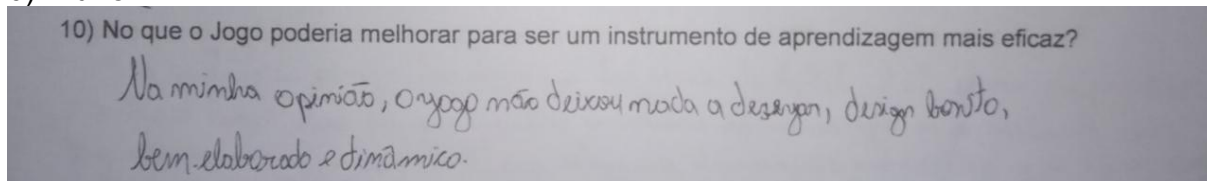 10) No que o Jogo poderia melhorar para ser um instrumento de aprendizagem mais eficaz?
Na minha opinião, o jogo não deixou nada a desejar, design bonito,
bem elaborado e dinâmico.